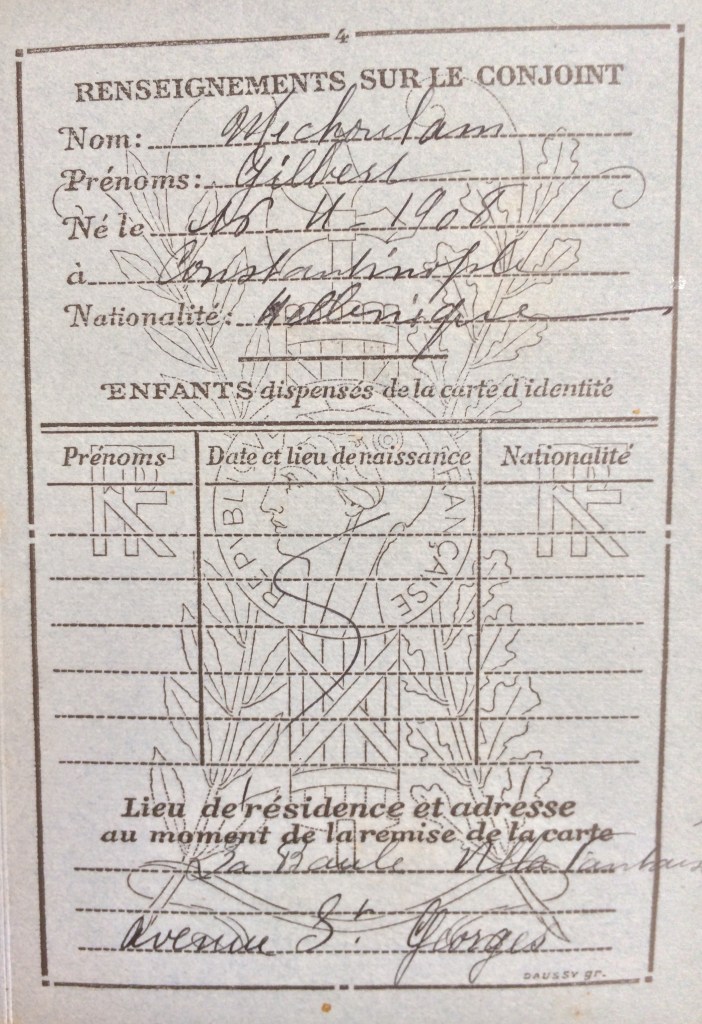 4
RENSEIGNEMENTS SUR LE CONJOINT
Nom: Mechoulam
Prénoms: Gilbert
Né le 15-4-1908
à Constantinople
Nationalité: Hellenique
ENFANTS dispensés de la carte d'identité
Prénoms Date et lieu de naissance Nationalité
RF RF
REPUBLIQUE FRANÇAISE
Lieu de résidence et adresse
au moment de la remise de la carte
La Baule Villa
avenue St Georges
DAUSSY gr.